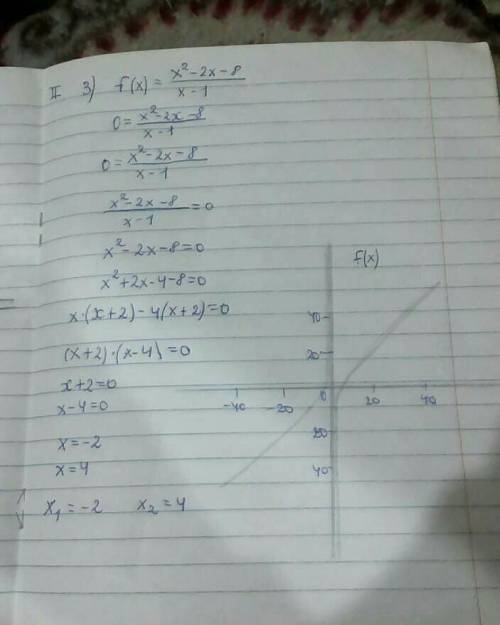 II 3) f(x) = x² - 2x - 8 / x - 1
0 = x² - 2x - 8 / x - 1
0 = x² - 2x - 8 / x - 1
x² - 2x - 8 / x - 1 = 0
x² - 2x - 8 = 0
x² + 2x - 4 - 8 = 0
x·(x+2) - 4(x+2) = 0
(x+2)·(x-4) = 0
x+2=0
x-4=0
x=-2
x=4
x₁ = -2 x₂ = 4
f(x)
40
20
-40 -20 0 20 40
20
40